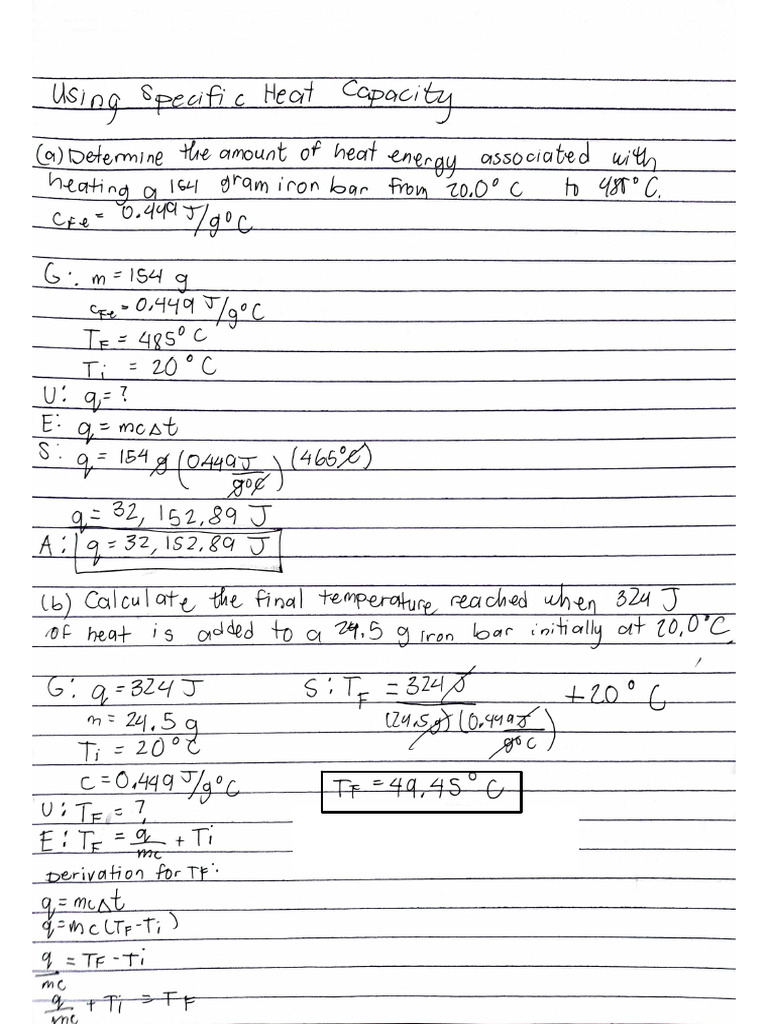 Using Specific Heat Capacity
(a) Determine the amount of heat energy associated with
heating a 154 gram iron bar from 20.0° C to 485° C.
CFe = 0.449 J/g°C
G: m = 154 g
CFe = 0.449 J/g°C
TF = 485° C
Ti = 20° C
U: q = ?
E: q = mcΔt
S: q = 154 g (0.449 J / g°C) (465°C)
q = 32, 152.89 J
A: q = 32, 152.89 J
(b) Calculate the final temperature reached when 324 J
of heat is added to a 24.5 g iron bar initially at 20.0°C.
G: q = 324 J
m = 24.5 g
Ti = 20°C
C = 0.449 J/g°C
U: TF = ?
E: TF = q/mc + Ti
Derivation for TF:
q = mcΔt
q = mc (TF - Ti)
q/mc = TF - Ti
q/mc + Ti = TF
S: TF = 324 J / (24.5 g) (0.449 J / g°C) + 20° C
TF = 49.45° C